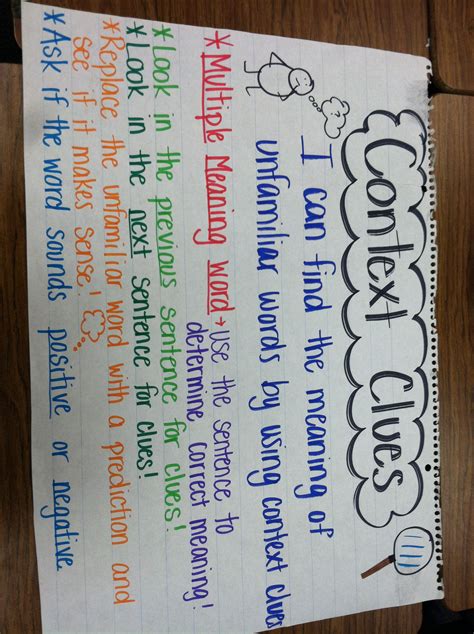 Context Clues
I can find the meaning of
unfamiliar words by using context clues
*Multiple Meaning word→use the sentence to
determine correct meaning!
*Look in the previous sentence for clues!
*Look in the next sentence for clues!
*Replace the unfamiliar word with a prediction and
see if it makes sense!
*Ask if the word sounds positive or negative